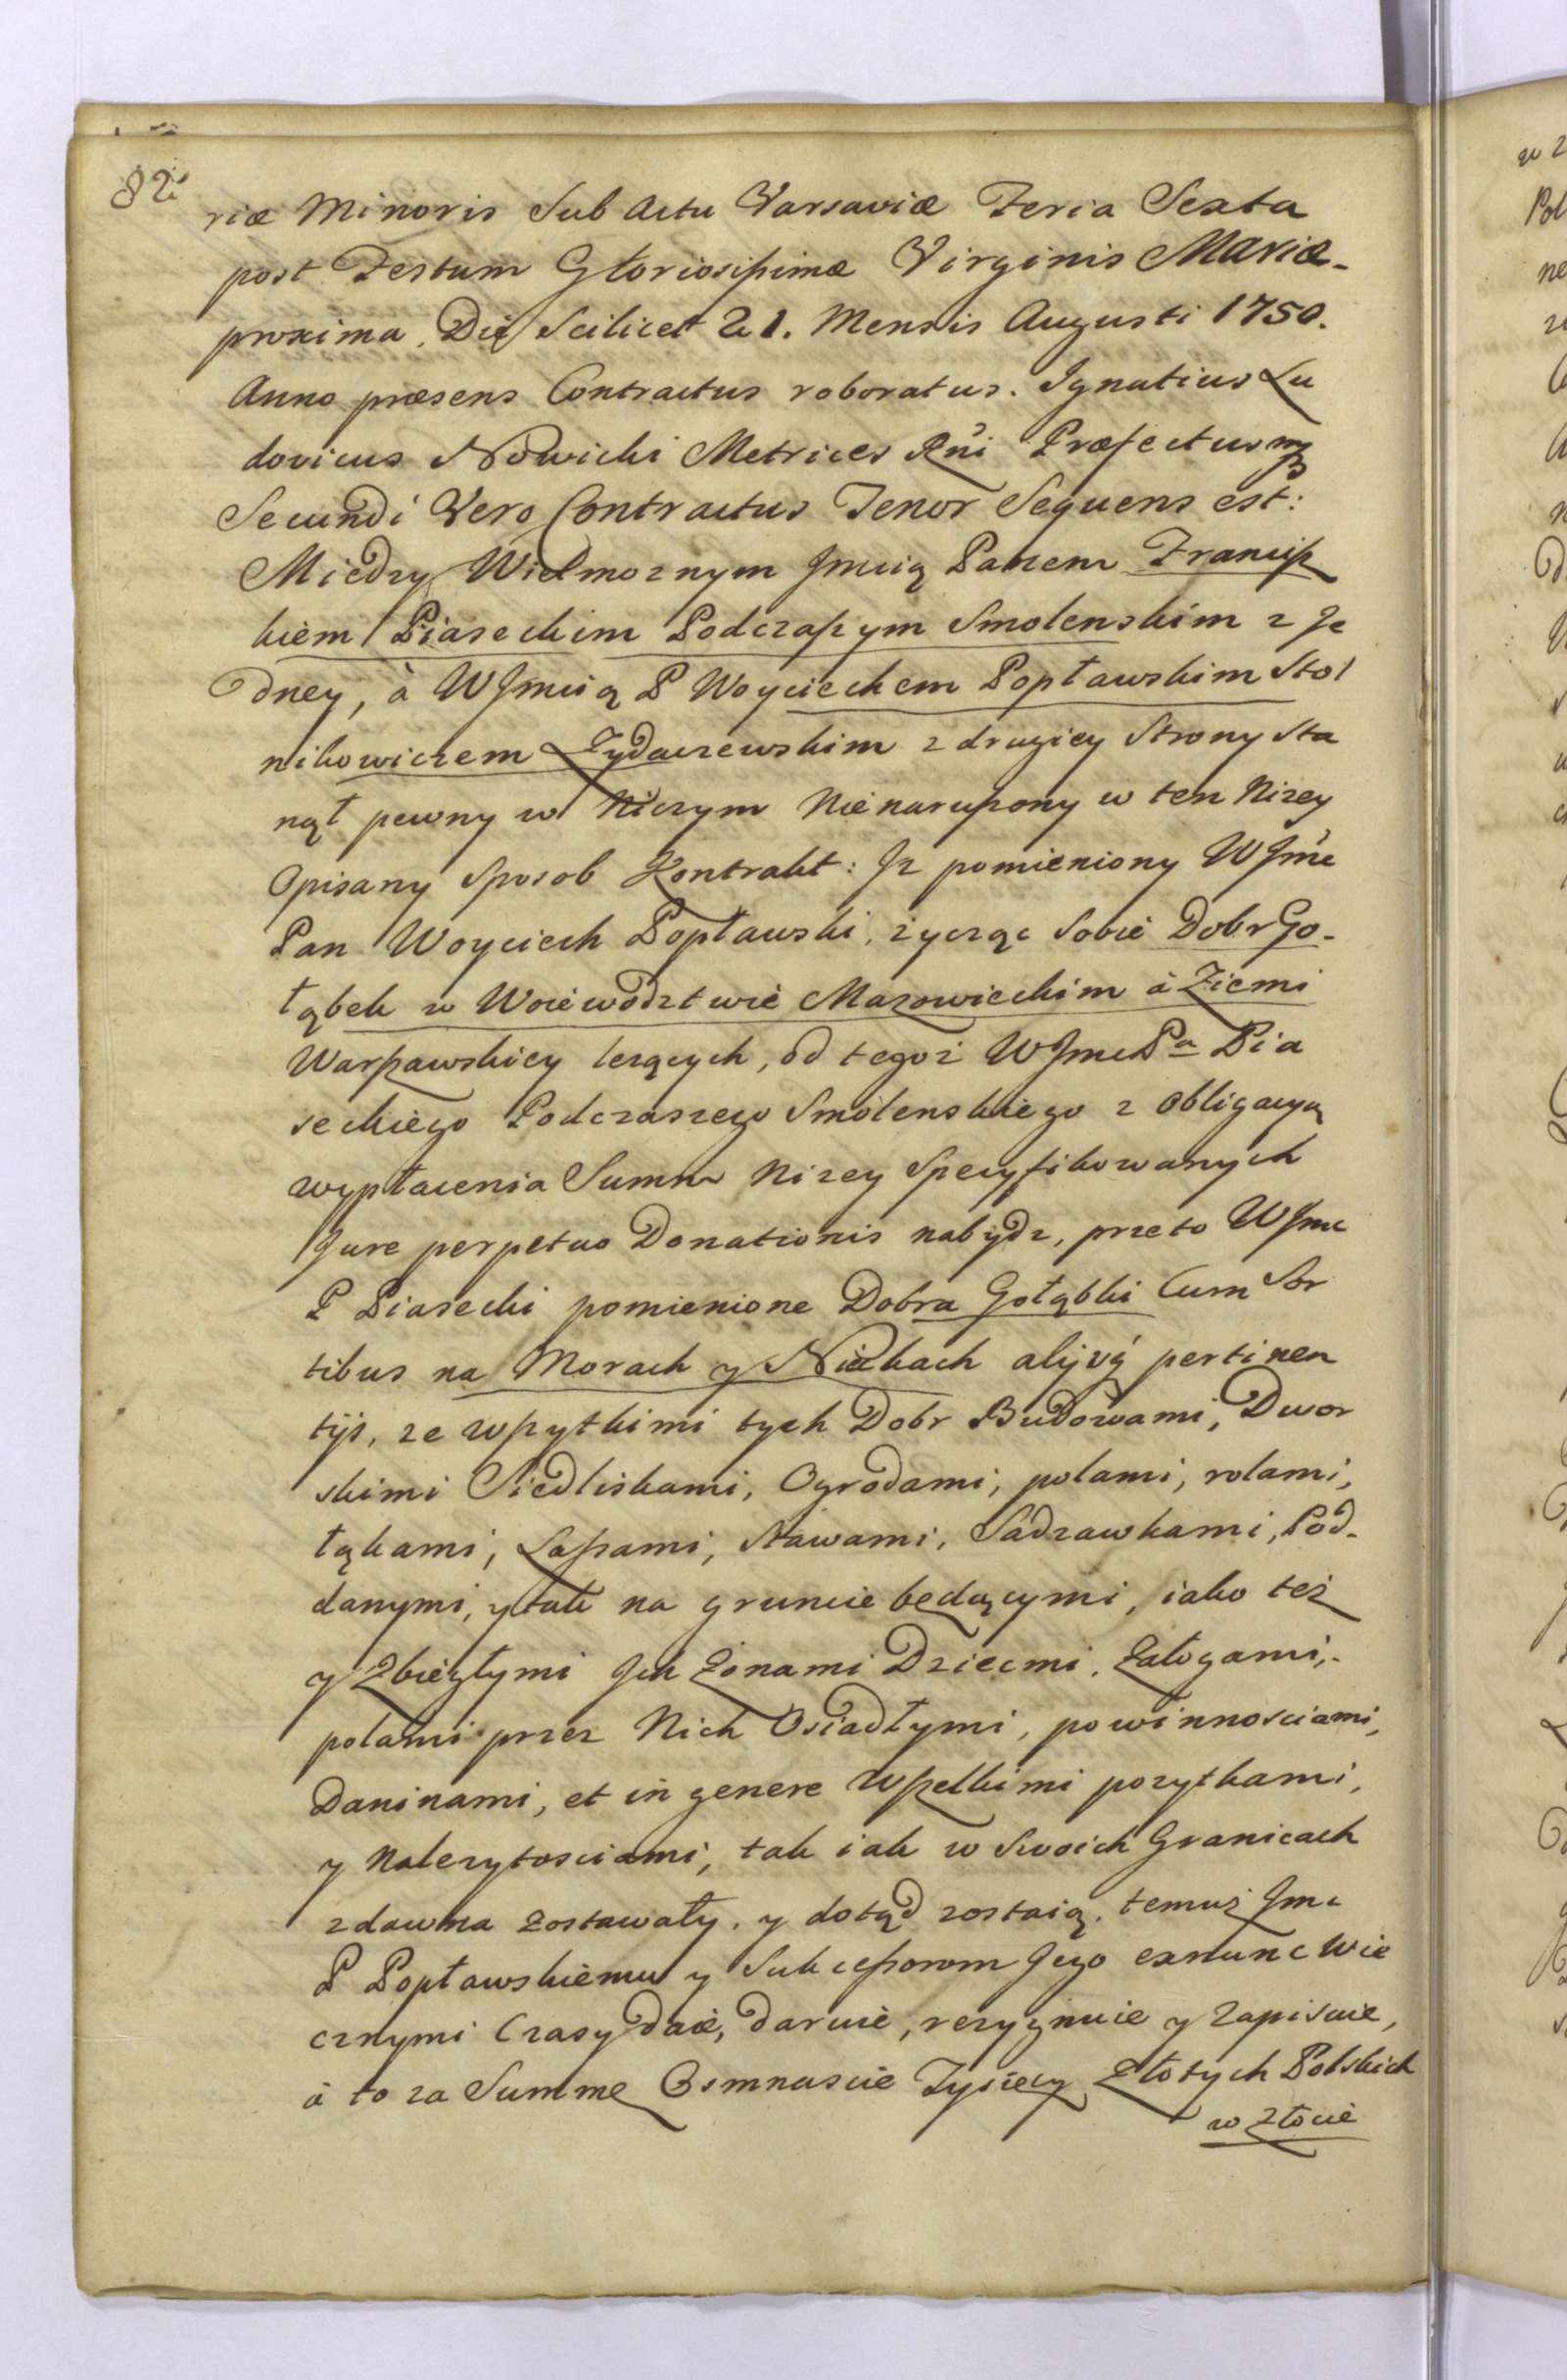 82
riæ Minoris Sub Actu Varsaviæ Feria Sexta
post Festum Gloriosißimæ Virginis Mariæ
proxima Die Scilicet 21. Mensis Augusti 1750.
Anno præsens Contractus roboratus. Ignatius Lu
dovicus Nowicki Metrices Rni Præfectus mp
Secundi Vero Contractus Tenor Sequens est:
Miedzy Wielmoznym Jmcią Panem Franciß
kiem Piaseckim Podczaßym Smolenskim z Je
dney, à WJmcią P Woyciechem Popławskim Stol
nikowiczem Zydaczewskim z drugiey Strony Sta
nął pewny w Niczym Nienarußony w ten Nizey
Opisany Sposob Kontrakt: Jz pomieniony WJmc
Pan Woyciech Popławski, życząc Sobie Dobr Go-
łąbek w Woiewodztwie Mazowieckim à Ziemi
Warßawskiey lezących, od tegoż WJmc Pa Pia
seckiego Podczaszego Smolenskiego z Obligacyą
wypłacenia Summ Nizey Specyfikowanych
Jure perpetuo Donationis nabydz, przeto WJmc
P Piasecki pomienione Dobra Gołąbki Cum Sor
tibus na Morach y Niekach alijsq́ pertinen
tijs, ze wßytkimi tych Dobr Budowami, Dwor
skimi Siedliskami, Ogrodami, polami, rolami,
łąkami, Laßami, Stawami, Sadzawkami, Pod-
danymi, y tak na gruncie będącymi, iako też
y Zbiegłymi Jch Żonami Dziecmi, Załogami,
polami przez Nich Osiadłymi, powinnosciami,
Daninami, et in genere Wßelkimi pozytkami,
y Nalezytosciami, tak iak w Swoich Granicach
zdawna zostawały, y dotąd zostaią, temuż Jmc
P Popławskiemu y Sukceßorom Jego exnunc Wie
cznymi Czasy Daie, Daruie, rezygnuie y Zapisuie,
à to za Summę Osmnascie Tysięcy Złotych Polskich
w Złocie